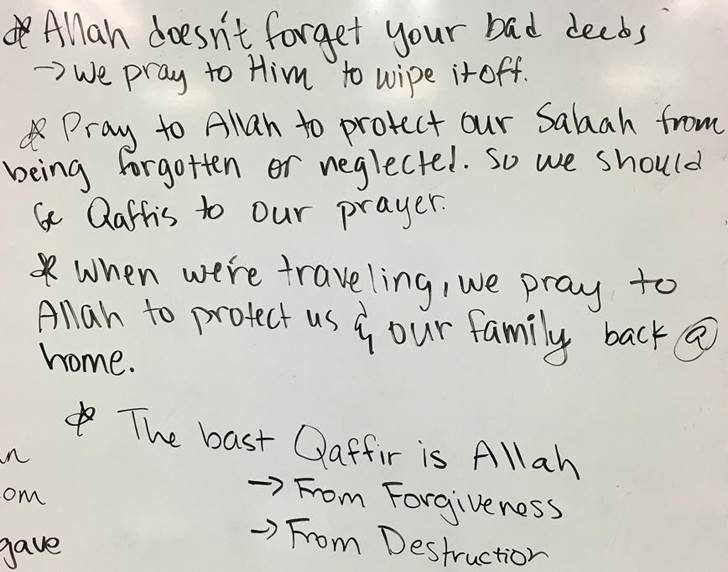 * Allah doesn't forget your bad deeds
→ we pray to Him to wipe it off.
* Pray to Allah to protect our Salaah from
being forgotten or neglected. So we should
be Qaffis to our prayer.
* When we're traveling, we pray to
Allah to protect us & our family back @
home.
* The bast Qaffir is Allah
→ From Forgiveness
→ From Destruction
n
om
gave